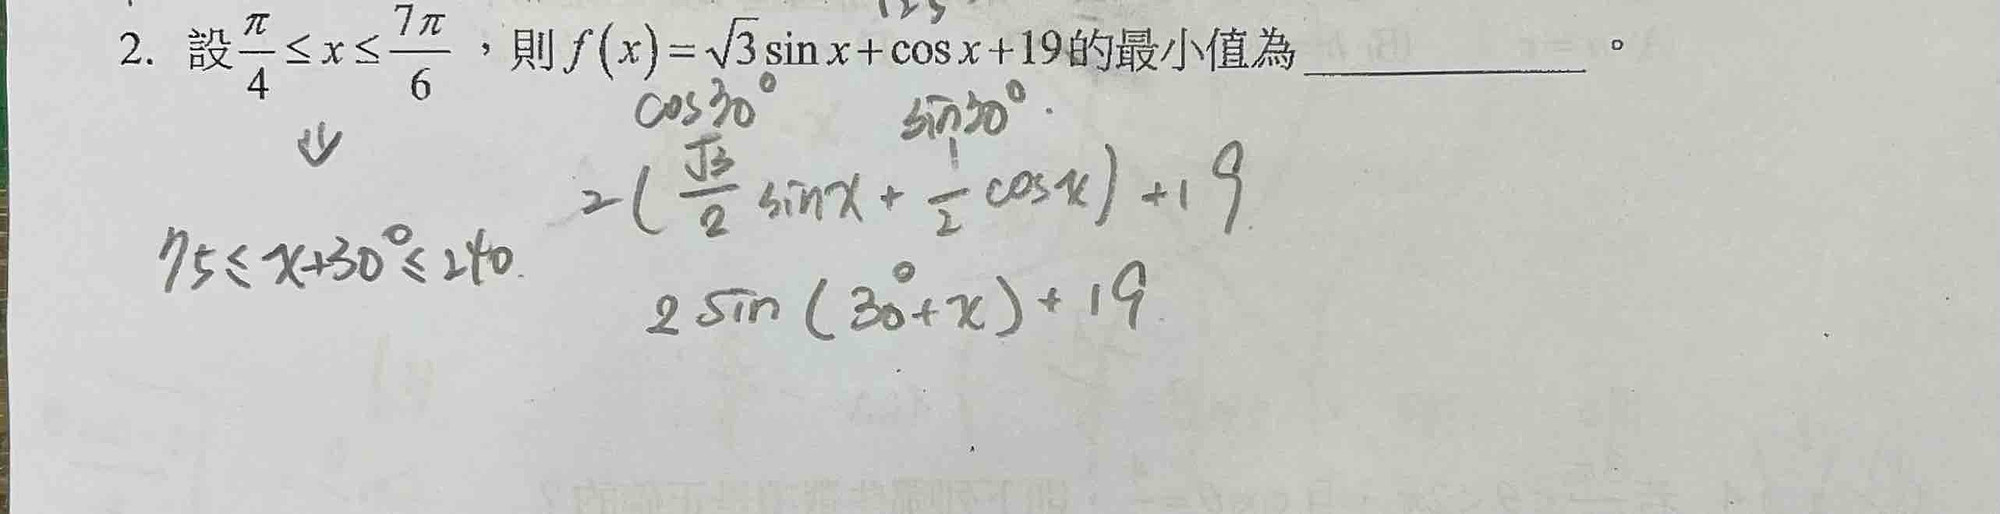 2. 設 π/4 ≤ x ≤ 7π/6，則 f(x) = √3 sin x + cos x + 19 的最小值為 ________ 。
cos30° sin30°.
⇓
2(√3/2 sinx + 1/2 cosx) + 19
75 ≤ x+30° ≤ 240.
2 sin (30°+x) + 19